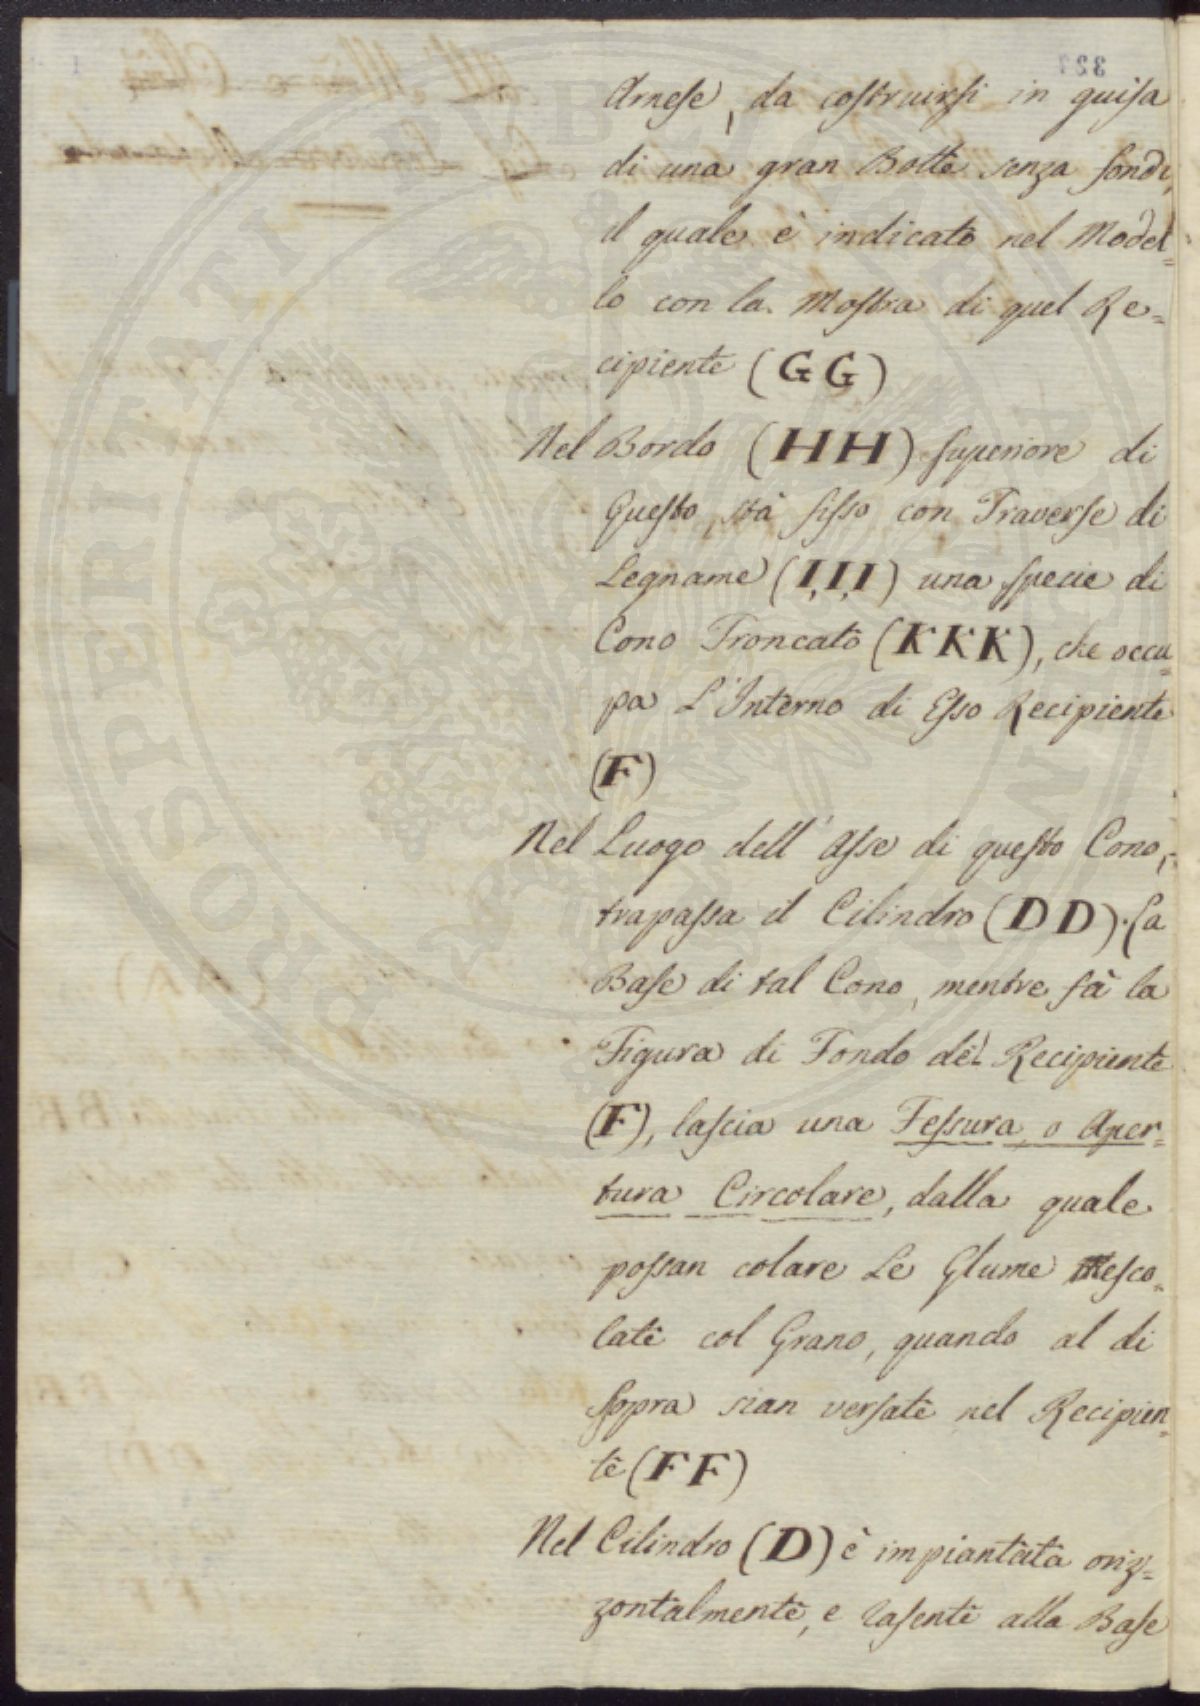 Arnese, da costruirsi in guisa
di una gran Botte senza fondi,
il quale è indicato nel Model=
lo con la Mostra di quel Re=
cipiente (GG)
Nel Bordo (HH) superiore di
Questo, stà fisso con Traverse di
Legname (I,I,I) una specie di
Cono Troncato (KKK), che occu=
pa L'Interno di Esso Recipiente
(F)
Nel Luogo dell'Asse di questo Cono,
trapassa il Cilindro (DD). La
Base di tal Cono, mentre fà la
Figura di Fondo del Recipiente
(F), lascia una Fessura, o Aper=
tura Circolare, dalla quale
possan colare Le Glume Mesco=
late col Grano, quando al di
sopra sian versate nel Recipien=
te (FF)
Nel Cilindro (D) è impiantata oriz=
zontalmente, e rasente alla Base
PROSPERITATI PUBLICAE AUGENDAE
327